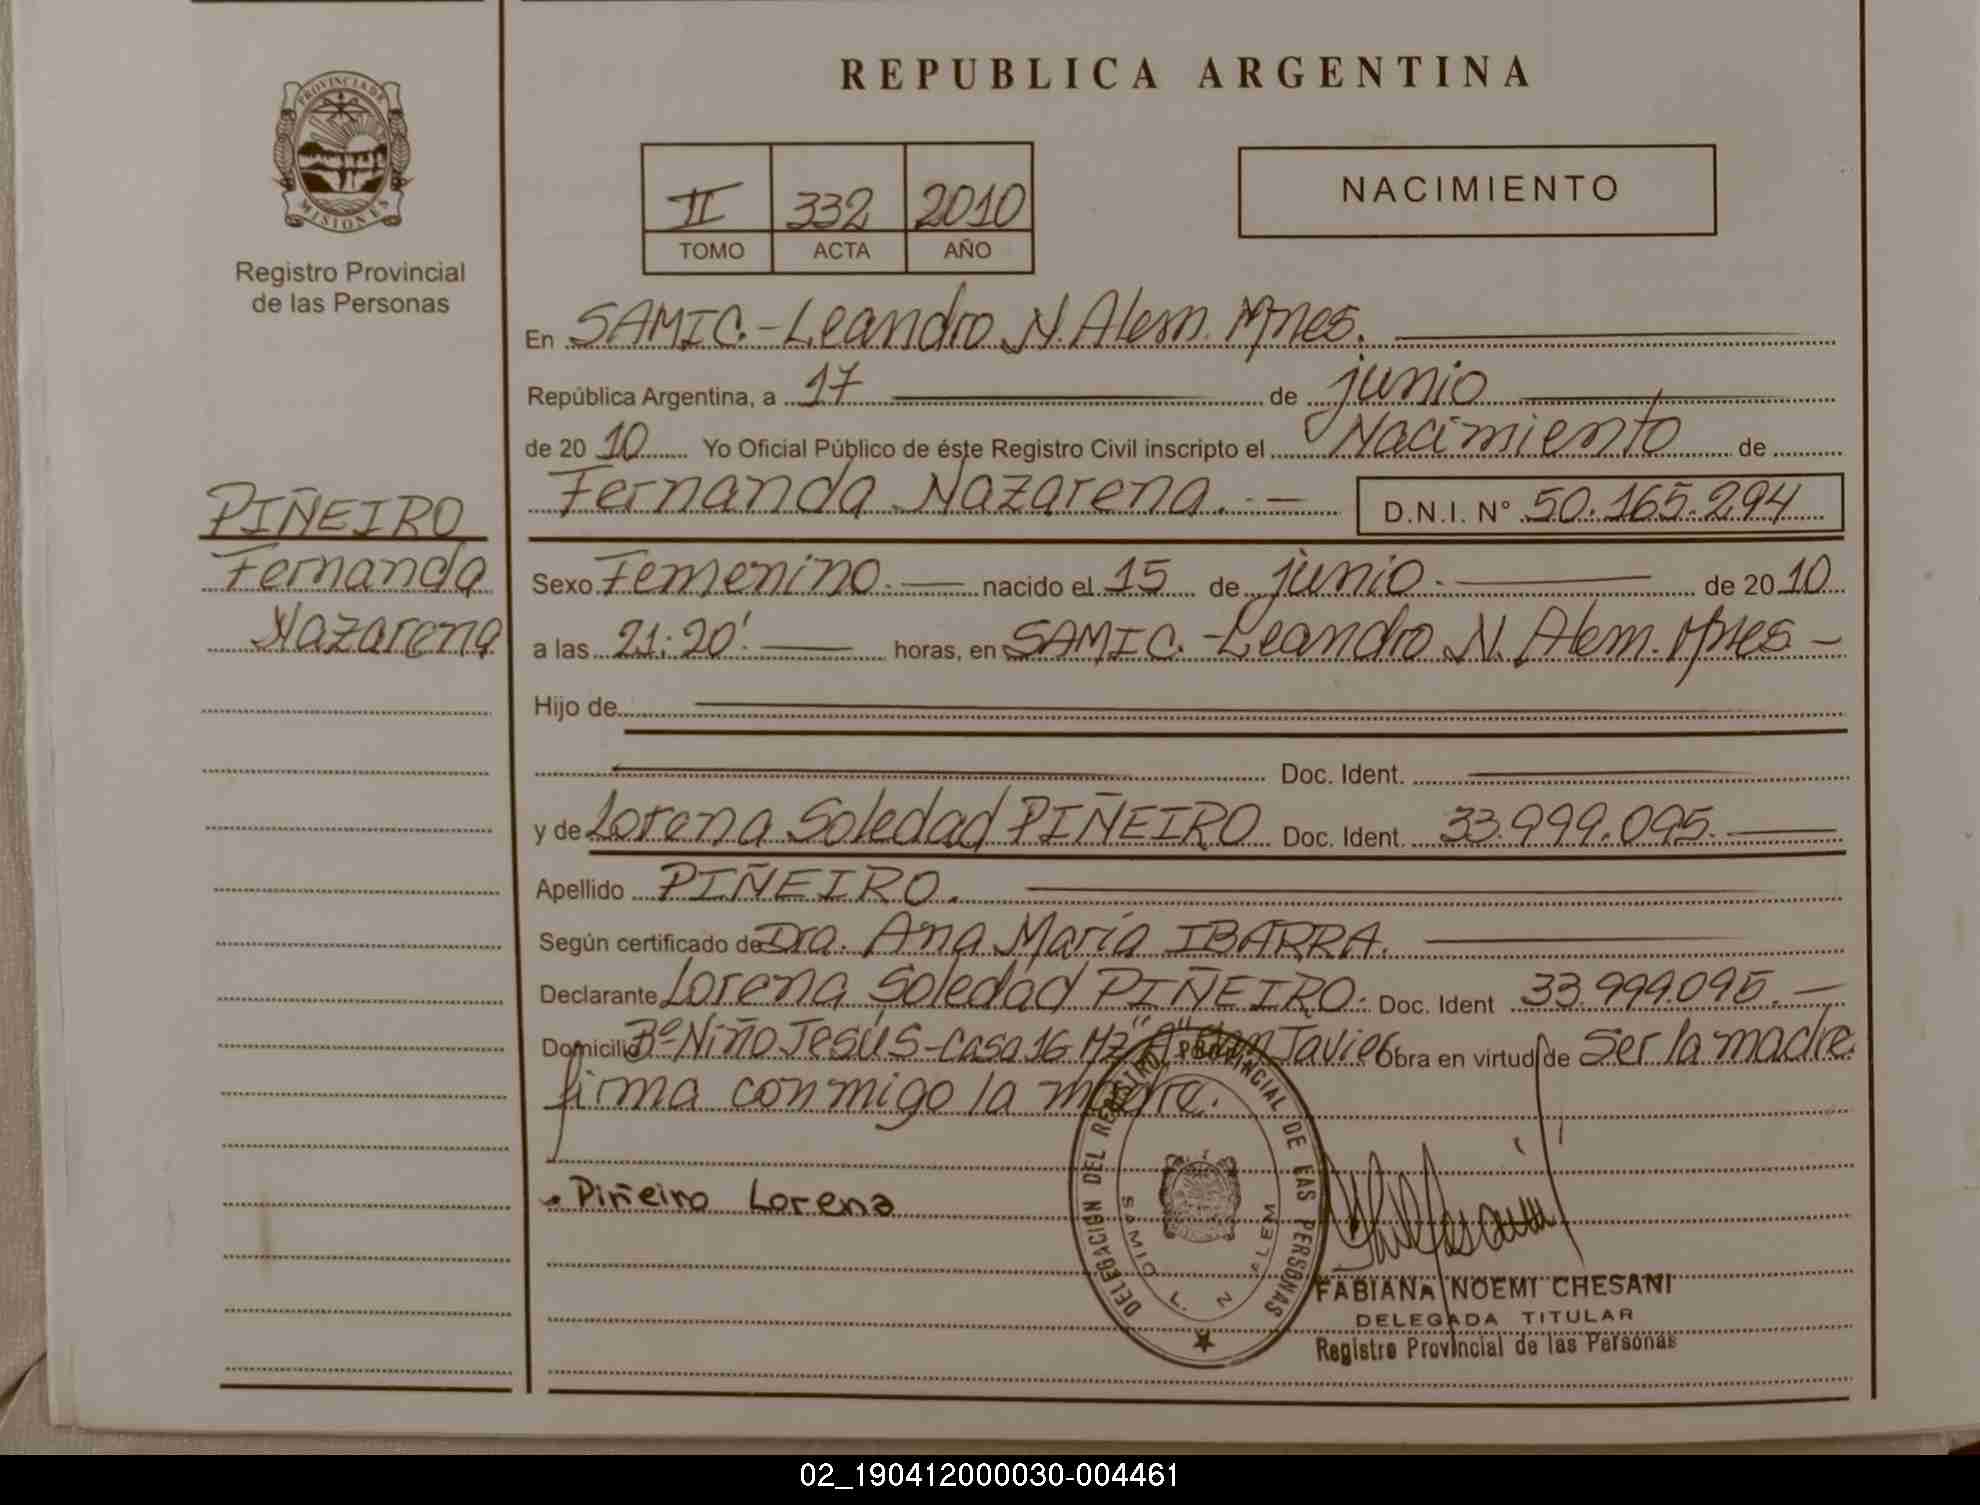 PROVINCIA DE
MISIONES
Registro Provincial
de las Personas
PIÑEIRO
Fernanda
Nazarena
REPUBLICA ARGENTINA
II 332 2010
TOMO ACTA AÑO
NACIMIENTO
En SAMIC.-Leandro N. Alem. Mnes.
República Argentina, a 17 de junio
de 20 10 Yo Oficial Público de éste Registro Civil inscripto el Nacimiento de
Fernanda Nazarena. D.N.I. N° 50.165.294
Sexo Femenino. nacido el 15 de junio. de 20 10
a las 21:20'. horas, en SAMIC.-Leandro N. Alem. Mnes -
Hijo de
Doc. Ident.
y de Lorena Soledad PIÑEIRO Doc. Ident. 33.999.095.
Apellido PIÑEIRO.
Según certificado de Dra. Ana María IBARRA.
Declarante Lorena Soledad PIÑEIRO. Doc. Ident 33.999.095.-
Domicilio Bº Niño Jesús-casa 16 Mz "A" San Javier Obra en virtud de Ser la madre
firma conmigo la madre.
Piñeiro Lorena
DELEGACION DEL REGISTRO PROVINCIAL DE LAS PERSONAS
SAMIC L. N ALEM
FABIANA NOEMI CHESANI
DELEGADA TITULAR
Registro Provincial de las Personas
02_190412000030-004461